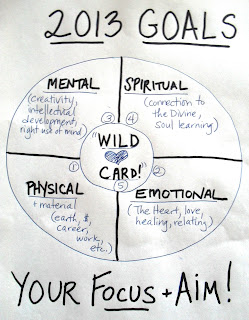 2013 GOALS
MENTAL
(creativity,
intellectual
development,
right use of mind)
③
SPIRITUAL
(connection to
the Divine,
soul learning)
④
"WILD
CARD!"
⑤
①
PHYSICAL
+ material
(earth, $,
career,
work,
etc.)
②
EMOTIONAL
(The Heart, love,
healing, relating)
YOUR FOCUS + AIM!